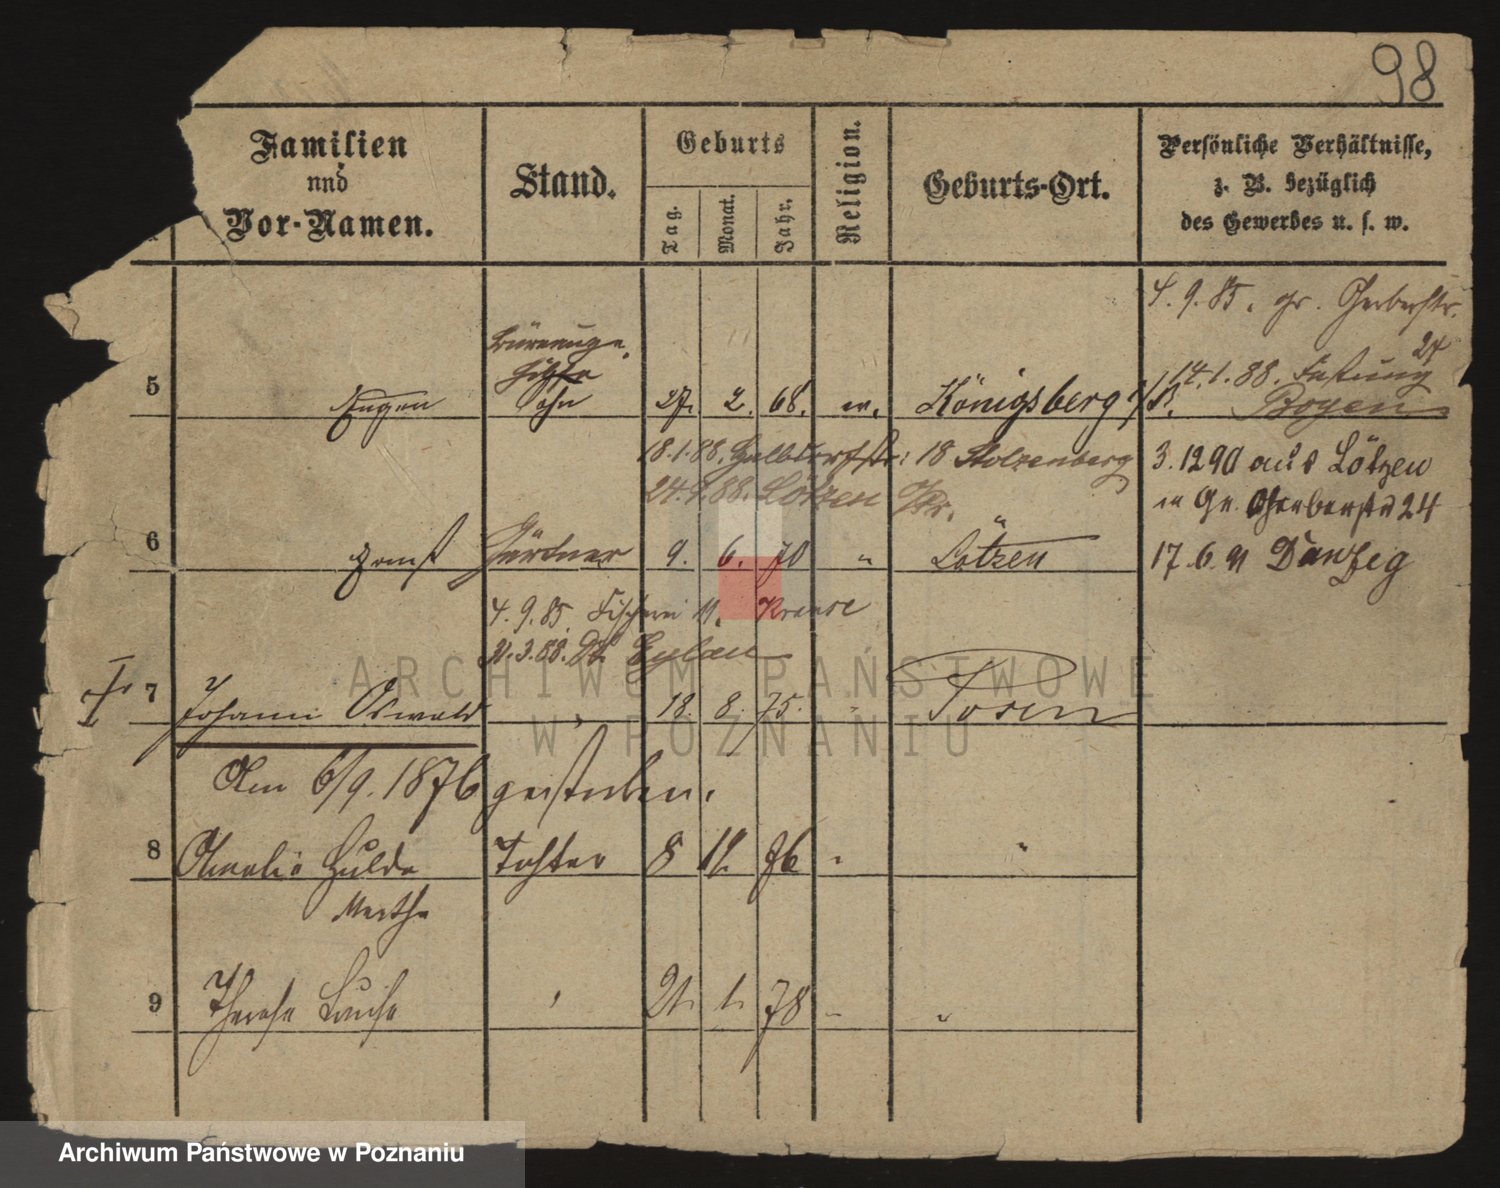 98
Familien
und
Vor-Namen.
Stand.
Geburts
Tag.
Monat.
Jahr.
Religion.
Geburts-Ort.
Persönliche Verhältnisse,
z. B. bezüglich
des Gewerbes u. s. w.
4. 9. 85. gr. Gerberstr.
24
14. 1. 88. Festung
Boyen
5 Eugen Sohn 27. 2. 68. ev. Königsberg i/P.
18. 1. 88. Halbdorfstr: 18 Stolzenberg
3. 12 90 aus Lötzen
24. 4. 88. Lötzen Pr.
in Gr. Gerberstr 24
6 Ernst Gärtner 9. 6. 70 " Lötzen
17. 6. 91 Danzig
4. 9. 85. Fischerei 11. Krause
3. 88. Dt. Eylau
7 Johann Oswald " 18. 8. 75. " Posen
Am 6/9. 1876 gestorben.
8 Amalie Hulda Tochter 8 12. 76 " "
Martha
9 Therese Luise " 21. 1. 78 " "
ARCHIWUM PAŃSTWOWE
W POZNANIU
Archiwum Państwowe w Poznaniu